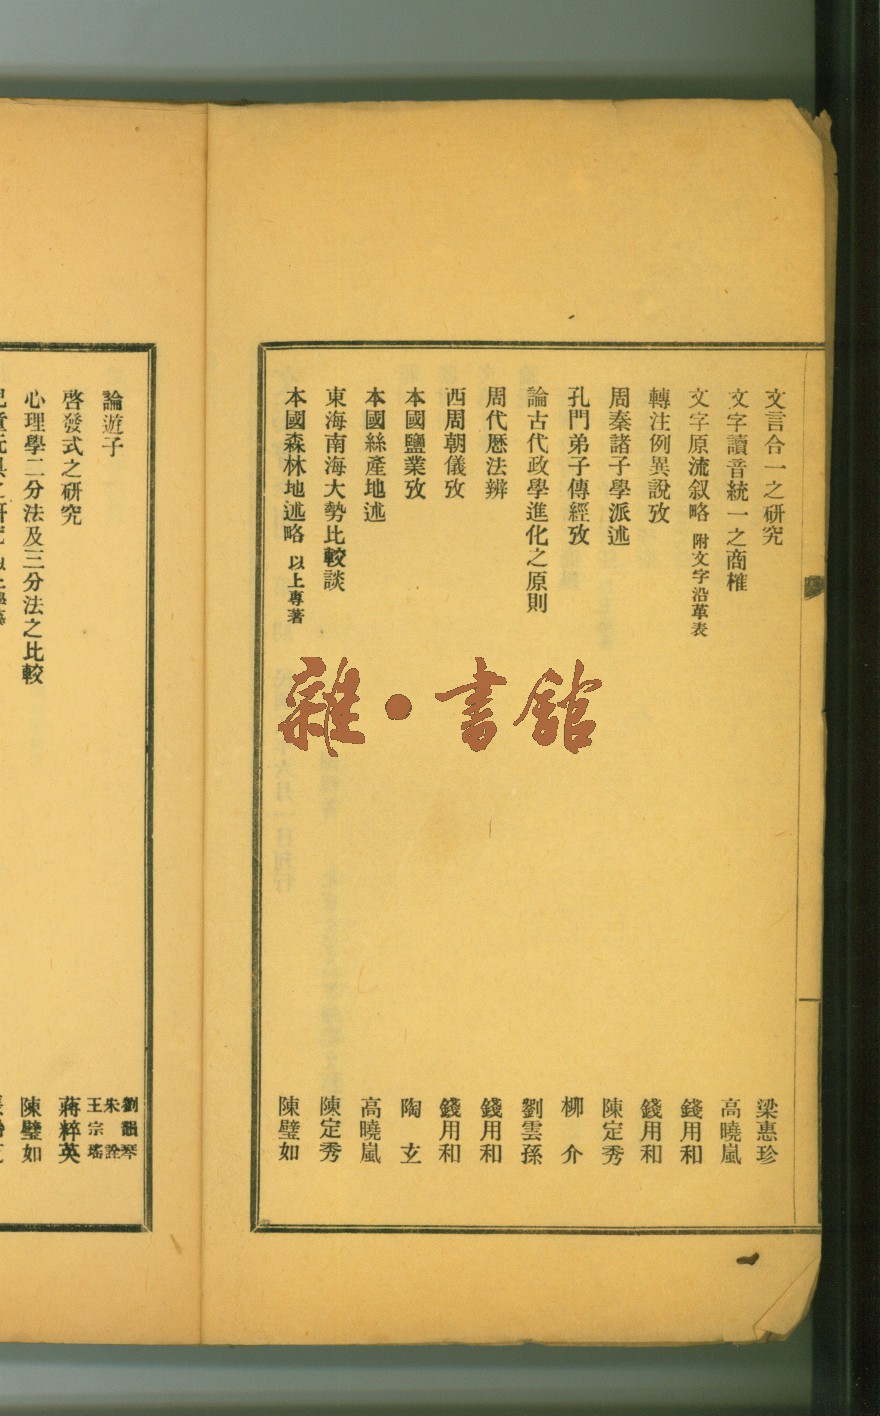 文言合一之研究 梁惠珍
文字讀音統一之商榷 高曉嵐
文字原流叙略 附文字沿革表 錢用和
轉注例異說攷 錢用和
周秦諸子學派述 陳定秀
孔門弟子傳經攷 柳介
論古代政學進化之原則 劉雲孫
周代曆法辨 錢用和
西周朝儀攷 錢用和
本國鹽業攷 陶玄
本國絲產地述 高曉嵐
東海南海大勢比較談 陳定秀
本國森林地述略 以上專著 陳璧如
論遊子 劉韻琴 朱詮 王宗瑤
啓發式之研究 蔣粹英
心理學二分法及三分法之比較 陳璧如
雜·書館